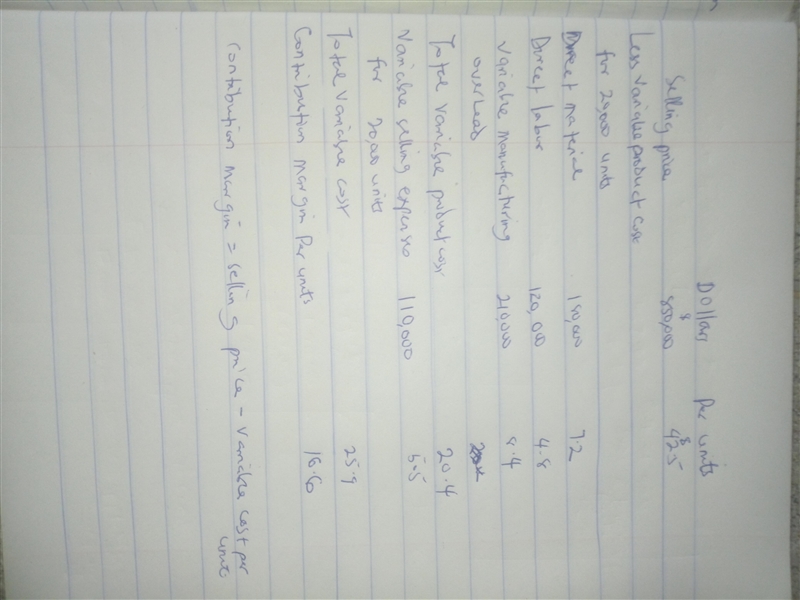 Dollars Per units
$ $
Selling price 850,000 42.5
Less variable product cost
for 25,000 units
Direct material 180,000 7.2
Direct labour 120,000 4.8
Variable manufacturing 210,000 8.4
overheads
Total variable product cost 20.4
Variable selling expenses 110,000 5.5
for 20,000 units
Total variable cost 25.9
Contribution margin Per units 16.60
Contribution margin = selling price - variable cost per
units